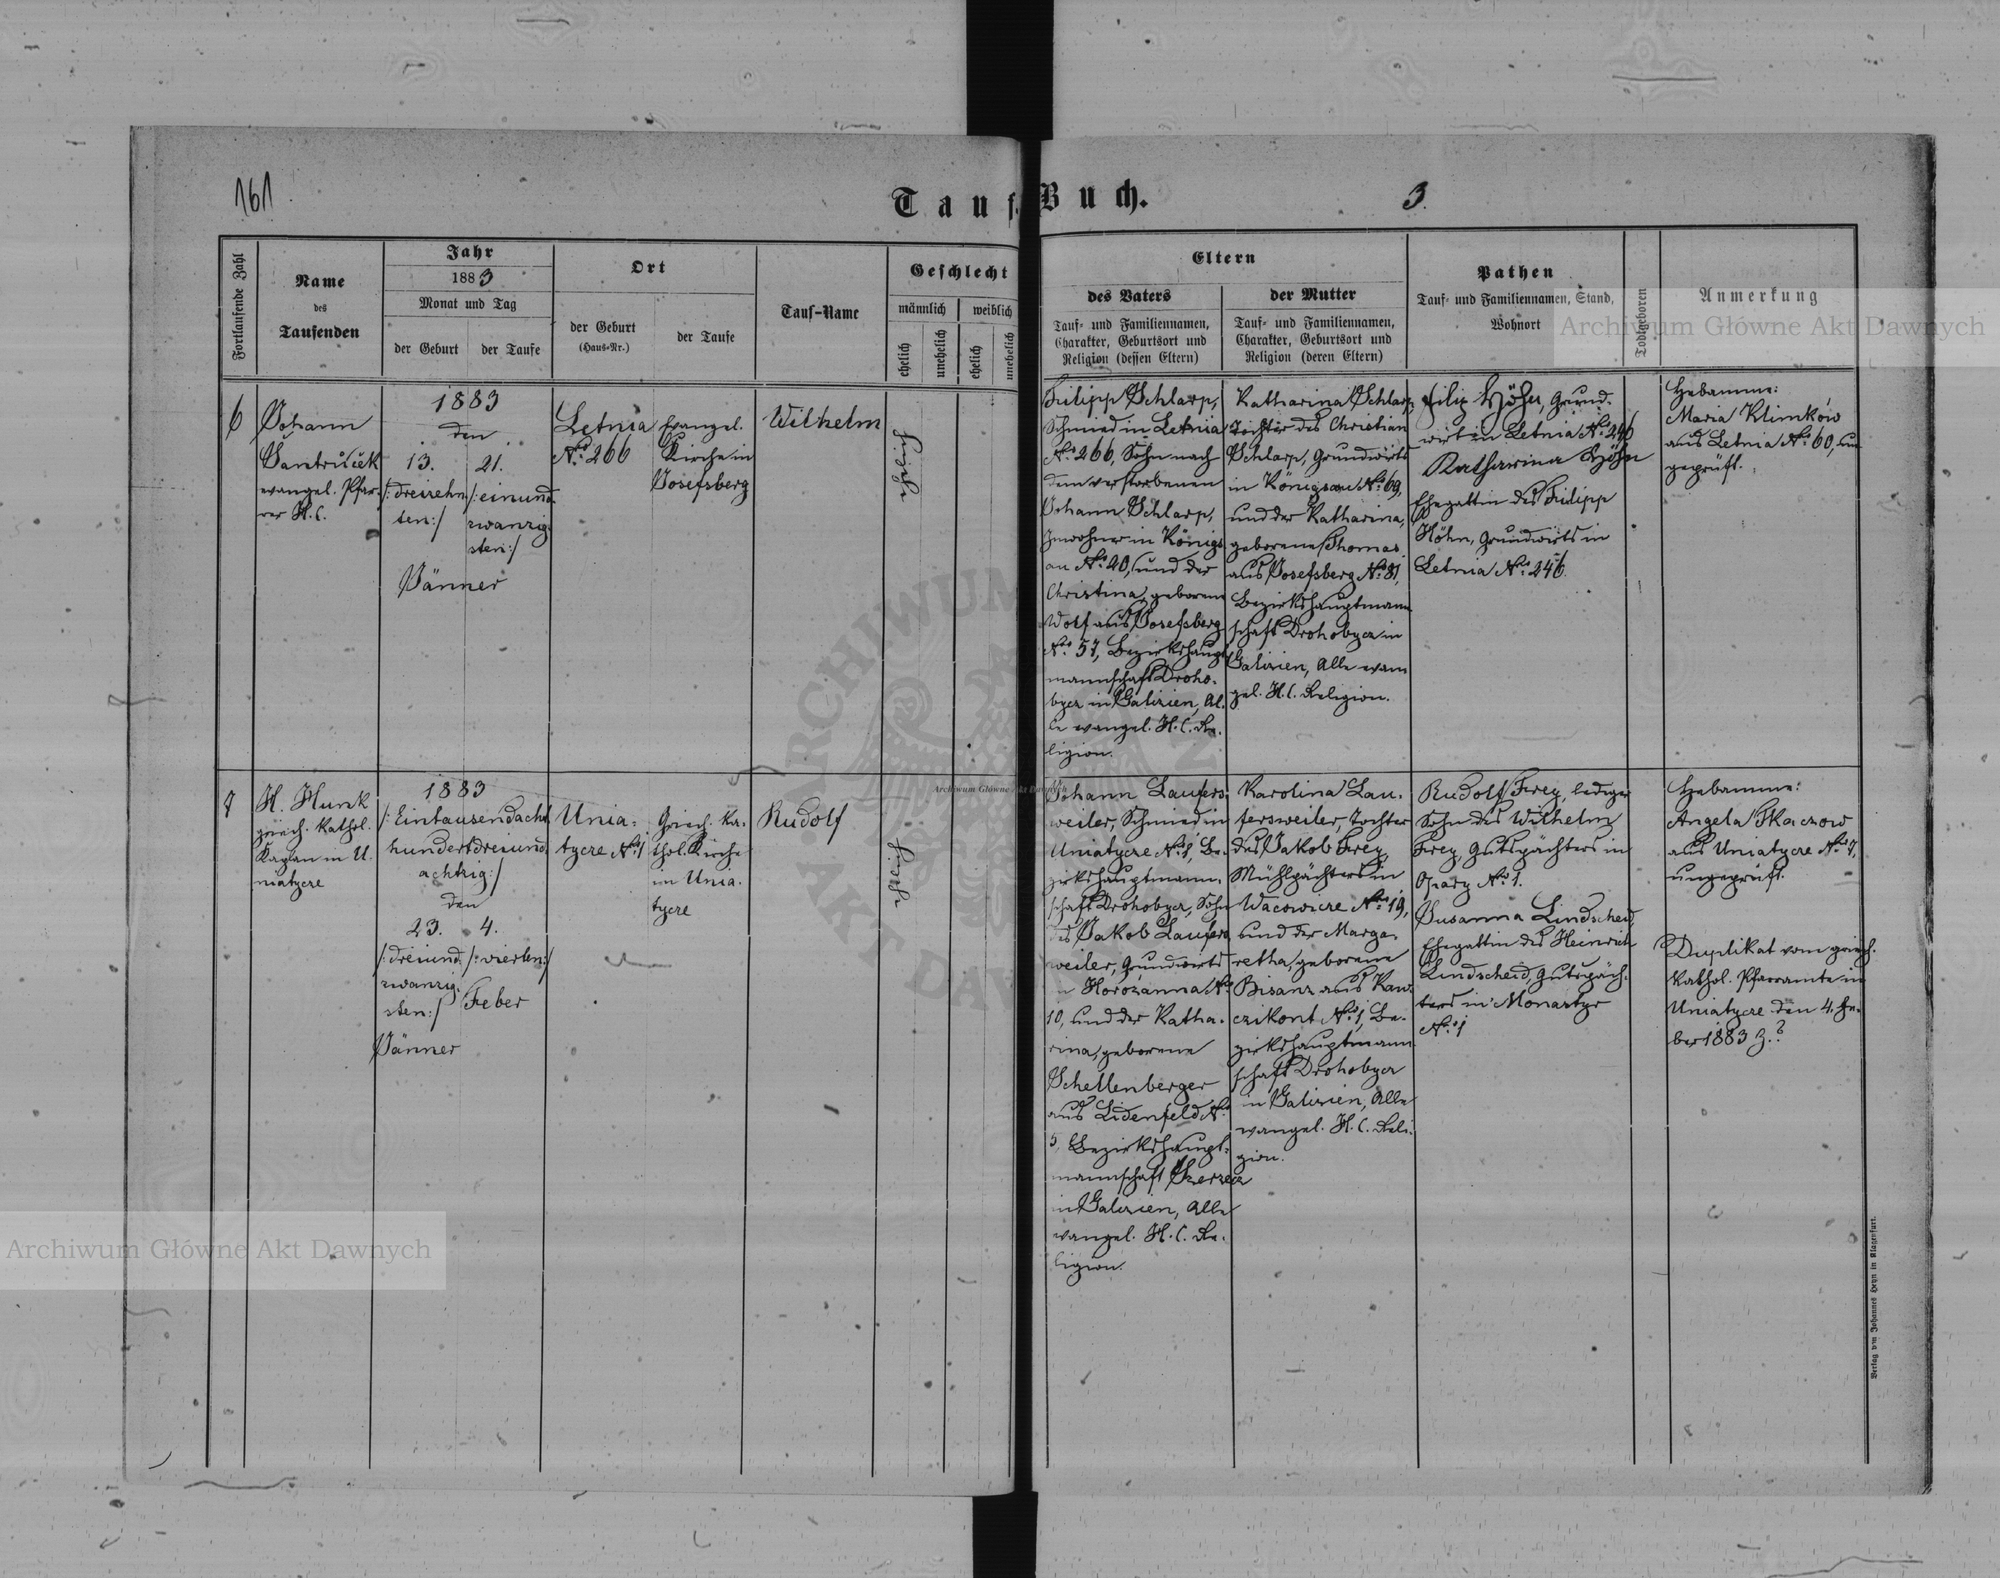 161
Tauf-Buch.
3.
Fortlaufende Zahl
Name
des
Taufenden
Jahr
1883
Monat und Tag
der Geburt
der Taufe
Ort
der Geburt
(Haus-Nr.)
der Taufe
Tauf-Name
Geschlecht
männlich
weiblich
ehelich
unehelich
ehelich
unehelich
Eltern
des Vaters
Tauf- und Familiennamen,
Charakter, Geburtsort und
Religion (dessen Eltern)
der Mutter
Tauf- und Familiennamen,
Charakter, Geburtsort und
Religion (deren Eltern)
Pathen
Tauf- und Familiennamen, Stand,
Wohnort
Todtgeboren
Anmerkung
6
Johann
Šantrůček
evangel. Pfar-
rer H.C.
1883
den
13.
/:dreizehn
ten:/
21.
/:einund
zwanzig
sten:/
Jänner
Letnia
No. 266
Evangel.
Kirche in
Josefsberg
Wilhelm
ehelich
Filipp Schlarp,
Schmied in Letnia
No. 266, Sohn nach
dem verstorbenen
Johann Schlarp,
Inwohner in Königs
au No. 40, und der
Christina, geborene
Wolf aus Josefsberg
No. 57, Bezirkshaupt
mannschaft Droho-
bycz in Galizien, Al-
le evangel. H.C. Re-
ligion.
Katharina Schlarp,
Tochter des Christian
Schlarp, Grundwirts
in Königsau No. 69,
und der Katharina,
geborene Thomas
aus Josefsberg No. 81,
Bezirkshauptmann
schaft Drohobycz in
Galizien, Alle evan
gel. H.C. Religion.
Filip Höhn, Grund-
wirt in Letnia No. 246
Katharina Höhn
Ehegattin des Filipp
Höhn, Grundwirts in
Letnia No. 246.
Hebamme:
Maria Klimków
aus Letnia No. 60, un
geprüft.
7
H. Hurak
griech. kathol.
Kaplan in U-
niatycze
1883
/:Eintausendacht
hundertdreiund
achtzig:/
den
23.
/:dreiund
zwanzig
sten:/
Jänner
4.
/:vierten:/
Feber
Unia-
tycze No. 1
Griech. ka-
thol. Kirche
in Unia-
tycze
Rudolf
ehelich
Johann Laufers-
weiler, Schmied in
Uniatycze No. 1, Be-
zirkshauptmann-
schaft Drohobycz, Sohn
des Jakob Laufers
weiler, Grundwirts
in Horozanna No.
10, und der Katha-
rina, geborene
Schellenberger
aus Lidenfeld No.
5, Bezirkshaupt-
mannschaft
in Galizien, Alle
evangel. H.C. Re-
ligion.
Karolina Lau-
fersweiler, Tochter
des Jakob Frey
Mühlpächters in
Wacowice No. 19,
und der Marga-
retha, geborene
Bisanz aus Kaw-
czikont No. 1, Be-
zirkshauptmann
schaft Drohobycz
in Galizien, Alle
evangel. H.C. Reli-
gion.
Rudolf Frey, lediger
Sohn des Wilhelm
Frey, Gutspächters in
Opary No. 1.
Susanna Lindscheid,
Ehegattin des Heinrich
Lindscheid, Gutspäch-
ters in Monastyr
No. 1
Hebamme:
Angela Tkaczow
aus Uniatycze No. 7,
ungeprüft.
Duplikat vom griech.
kathol. Pfarramte in
Uniatycze den 4. Fe-
ber 1883 Z.?
Verlag von Johannes Heyn in Klagenfurt.
Archiwum Główne Akt Dawnych
Archiwum Główne Akt Dawnych
Archiwum Główne Akt Dawnych